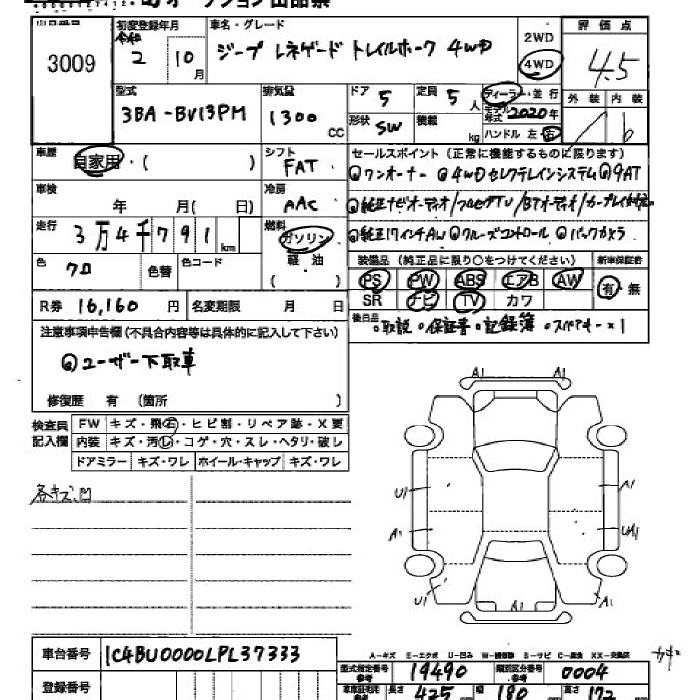 オークション出品票
出品番号 初度登録年月 車名・グレード 2WD 評価点
3009 令和 2 10月 ジープ レネゲード トレイルホーク 4WD 4WD 4.5
型式 排気量 ドア 5 定員 5人 ディーラー・並行 外装 内装
3BA-BV13PM 1300 CC 形状 SW 積載 kg モデル年式 2020年 ハンドル 左・右 b
車歴 自家用・( ) シフト FAT セールスポイント (正常に機能するものに限ります)
◎ワンオーナー ◎4WDセレクテレインシステム ◎9AT
車検 年 月( 日) 冷房 AAC ◎純正ナビオーディオ/フルセグTV/BTオーディオ/カープレイ
走行 3万4千791km 燃料 ガソリン ◎純正17インチAW ◎クルーズコントロール ◎バックカメラ
色 クロ 色替 色コード 軽・油 ( ) 装備品 (純正品に限り○をつけてください) 新車保証書
PS PW ABS エアB AW 有・無
R券 16,160円 名変期限 月 日 SR ナビ TV カワ
注意事項申告欄(不具合内容等は具体的に記入して下さい) 後日品 ○取説 ○保証書 ○記録簿 ○スペアキー×1
◎ユーザー下取車
修復歴 有 (箇所 )
検査員記入欄 FW キズ・飛石・ヒビ割・リペア跡・X要
内装 キズ・汚れ・コゲ・穴・スレ・ヘタリ・破レ
ドアミラー キズ・ワレ ホイール・キャップ キズ・ワレ
A1 A1
A1
各キズ、凹
U1 A1
A1 UA1
U1 A1 U1
A-キズ E-エクボ U-凹み W-補修跡 S-サビ C-腐食 XX-交換済
車台番号 1C4BU0000LPL37333
型式指定番号 19490 類別区分番号 0004
登録番号 長さ 425 cm 幅 180 cm 高さ 172